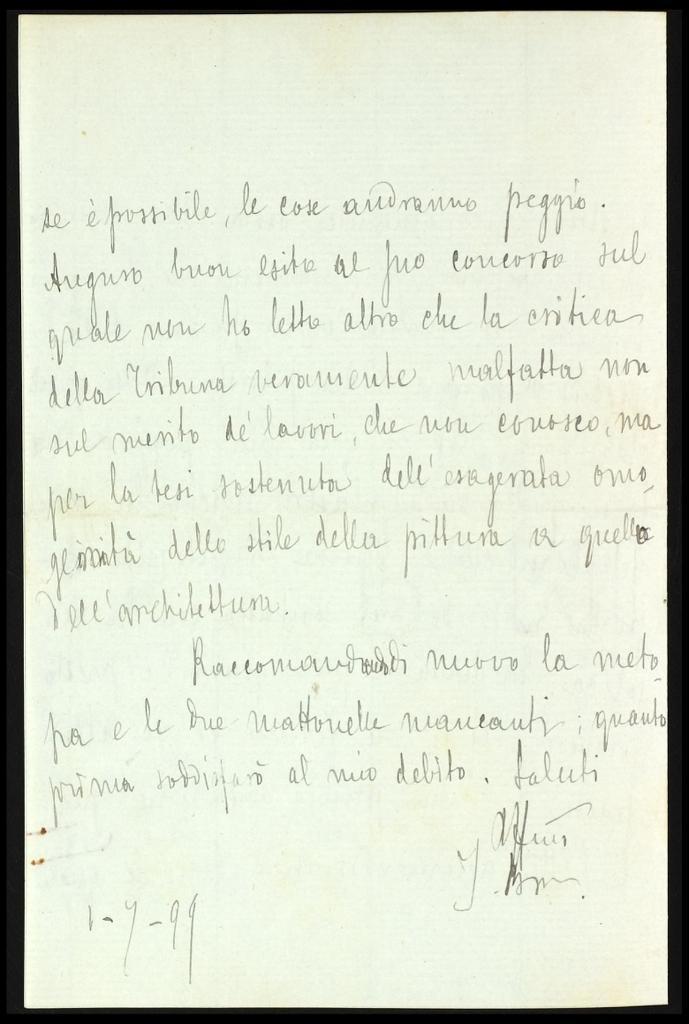 se è possibile, le cose andranno peggio.
Auguro buon esito al suo concorso sul
quale non ho letto altro che la critica
della Tribuna veramente malfatta non
sul merito de' lavori, che non conosco, ma
per la tesi sostenuta dell'esagerata omo-
geinità dello stile della pittura a quello
dell'architettura.
Raccomandando di nuovo la meto-
pa e le due mattonelle mancanti; quanto
prima soddisfarò al mio debito. Saluti
Affmo
1-7-99